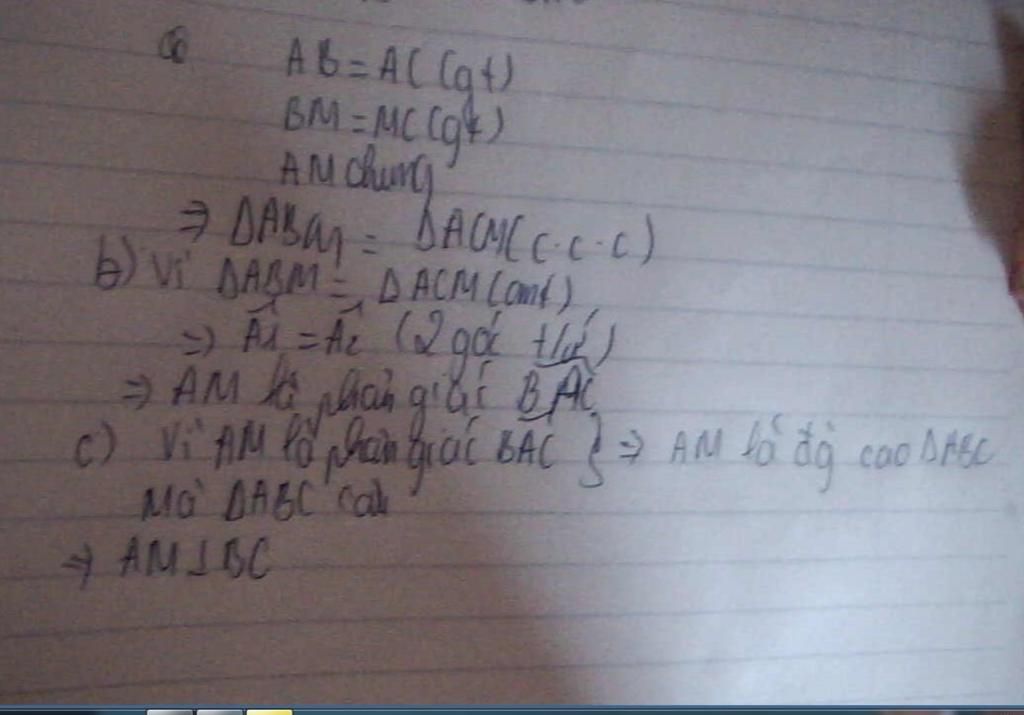 Có AB = AC (gt)
BM = MC (gt)
AM chung
⇒ ΔABM = ΔACM (c.c.c)
b) Vì ΔABM = ΔACM (cmt)
⇒ Â1 = Â2 (2 góc t/ứ)
⇒ AM là phân giác BAC
c) Vì AM là phân giác BAC } ⇒ AM là đg cao ΔABC
Mà ΔABC cân
⇒ AM ⊥ BC